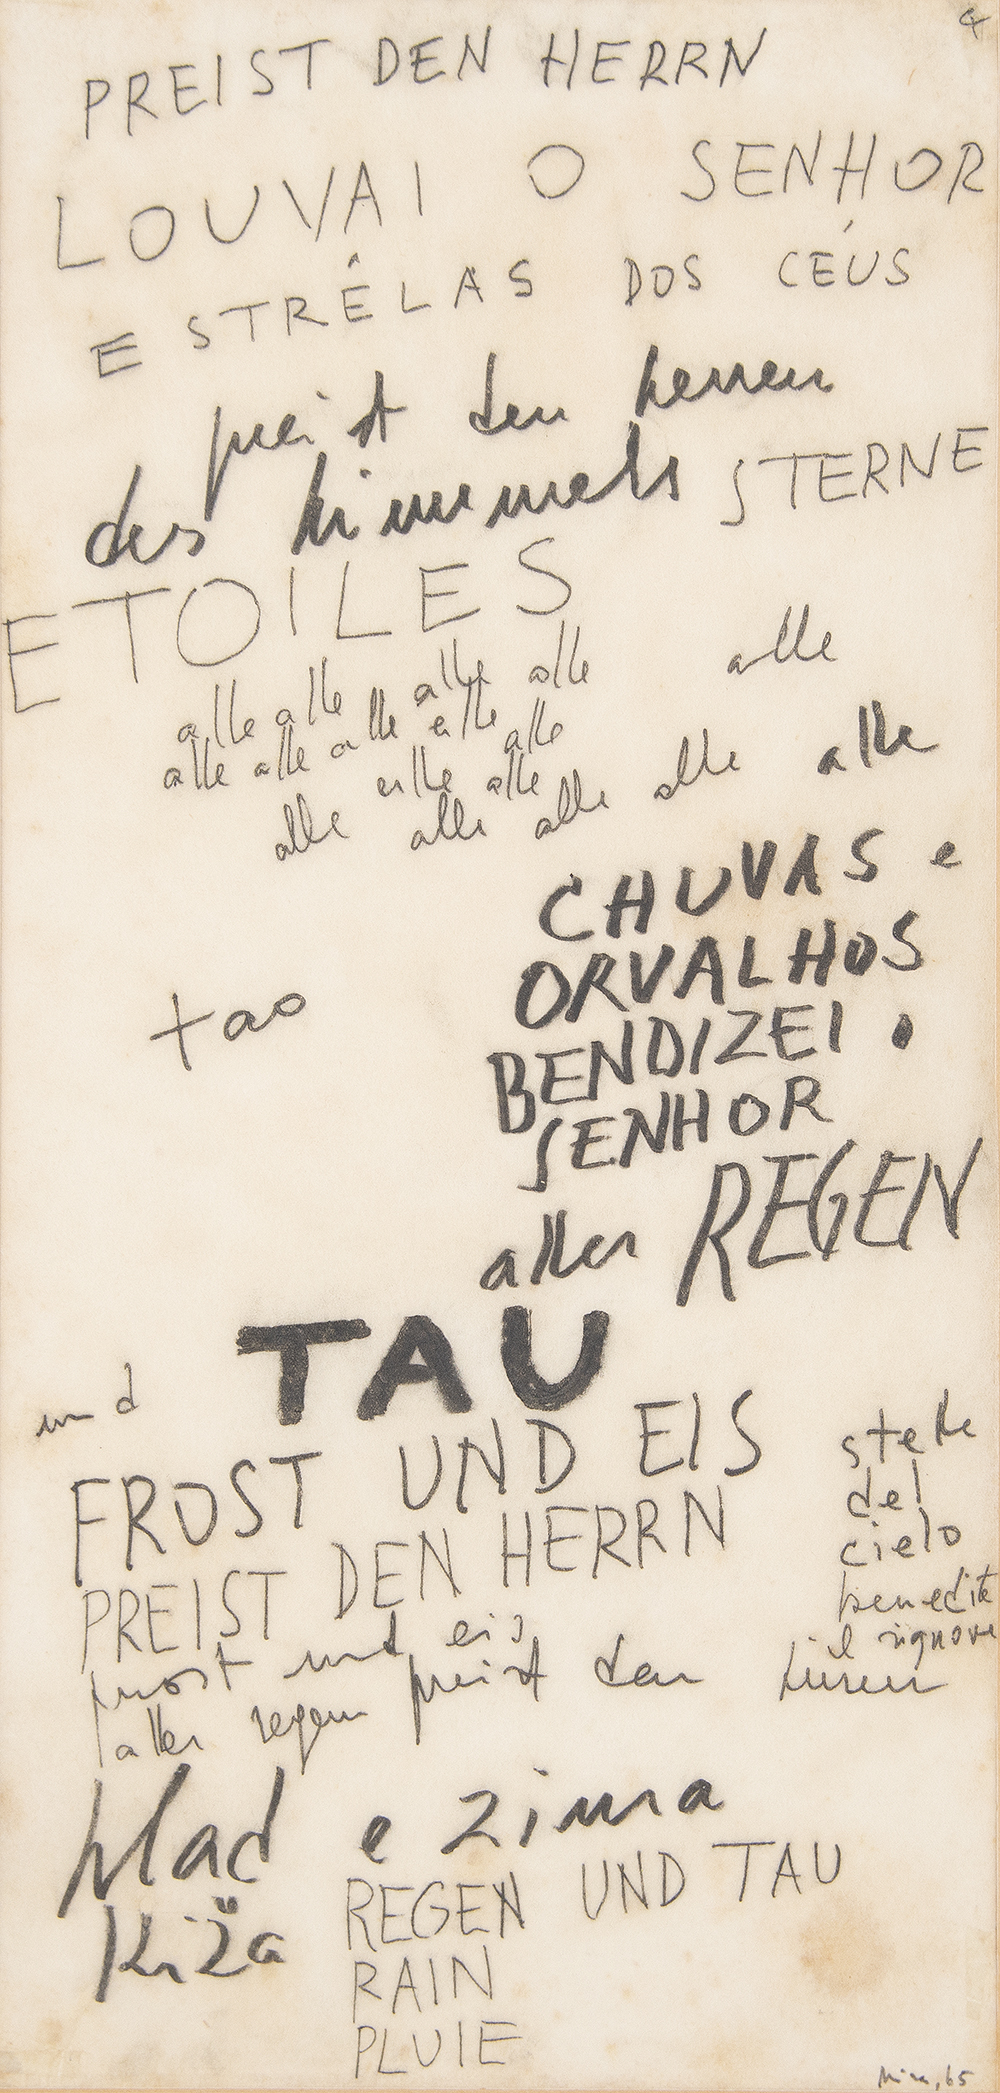 PREIST DEN HERRN
LOUVAI O SENHOR
ESTRÊLAS DOS CÉUS
preist den herren
des himmels STERNE
ETOILES
alle alle alle alle alle
alle alle alle alle alle
alle alle
alle alle alle alle alle
CHUVAS e
ORVALHOS
tao
BENDIZEI o
SENHOR
aller REGEN
und TAU
FROST UND EIS
PREIST DEN HERRN
stelle
del
cielo
benedite
il signore
frost und eis
aller regen preist den herren
hlad e zima
kiža
REGEN UND TAU
RAIN
PLUIE
Mira, 65